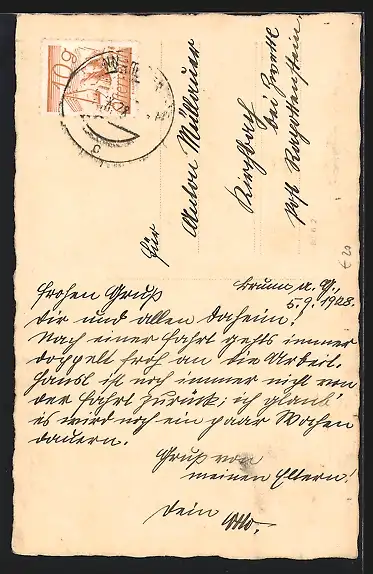 10g
Für
Anton Müllauer
Kirchbach
bei Zwettl
Post Rappottenstein
€ 20
Brunn a. G.,
5.9.1928.
Frohen Gruß
Dir und allen daheim.
Nach einer Fahrt gehts immer
doppelt froh an die Arbeit.
Hansl ist noch immer nicht von
der Fahrt zurück; ich glaub'
es wird noch ein paar Wochen
dauern.
Gruß von
meinen Eltern!
Dein
Otto.